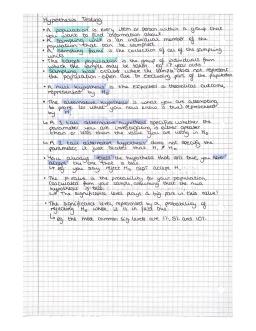 Hypothesis Testing
• A population is every item or person within a group that
we want to find information about.
• A sampling unit is an individual member of the
population that can be sampled
• A sampling frame is the collection of all of the sampling
units
• The target population is the group of individuals from
which the sample may be taken
• Sampling bias occurs when the sample does not represent
the population often due to excluding part of the population
• A null hypothesis is the expected or theoretical outcome,
represented by H₀
• The alternative hypothesis is what you are attempting
to prove is
by H₁
• A 1 tail alternative hypothesis specifies whether the
parameter you are investigating is either greater
than or less than the value you are using in H₀
• A 2 tail alternative hypothesis does not specify the
parameter, it just states that H₁ ≠ H₀
• You always the hypothesis that
accept the one that is true
↳ eg. you say reject H₀ not accept H₁
• The p value is the probability for your population,
calculated from your sample, assuming that the null
hypothesis is true
↳ The significance level plays a big part in this value!
• The significance level, represented by α, probability of
rejecting H₀ when it is in fact true
↳ the most common sig levels are 1%, 5% and 10%.